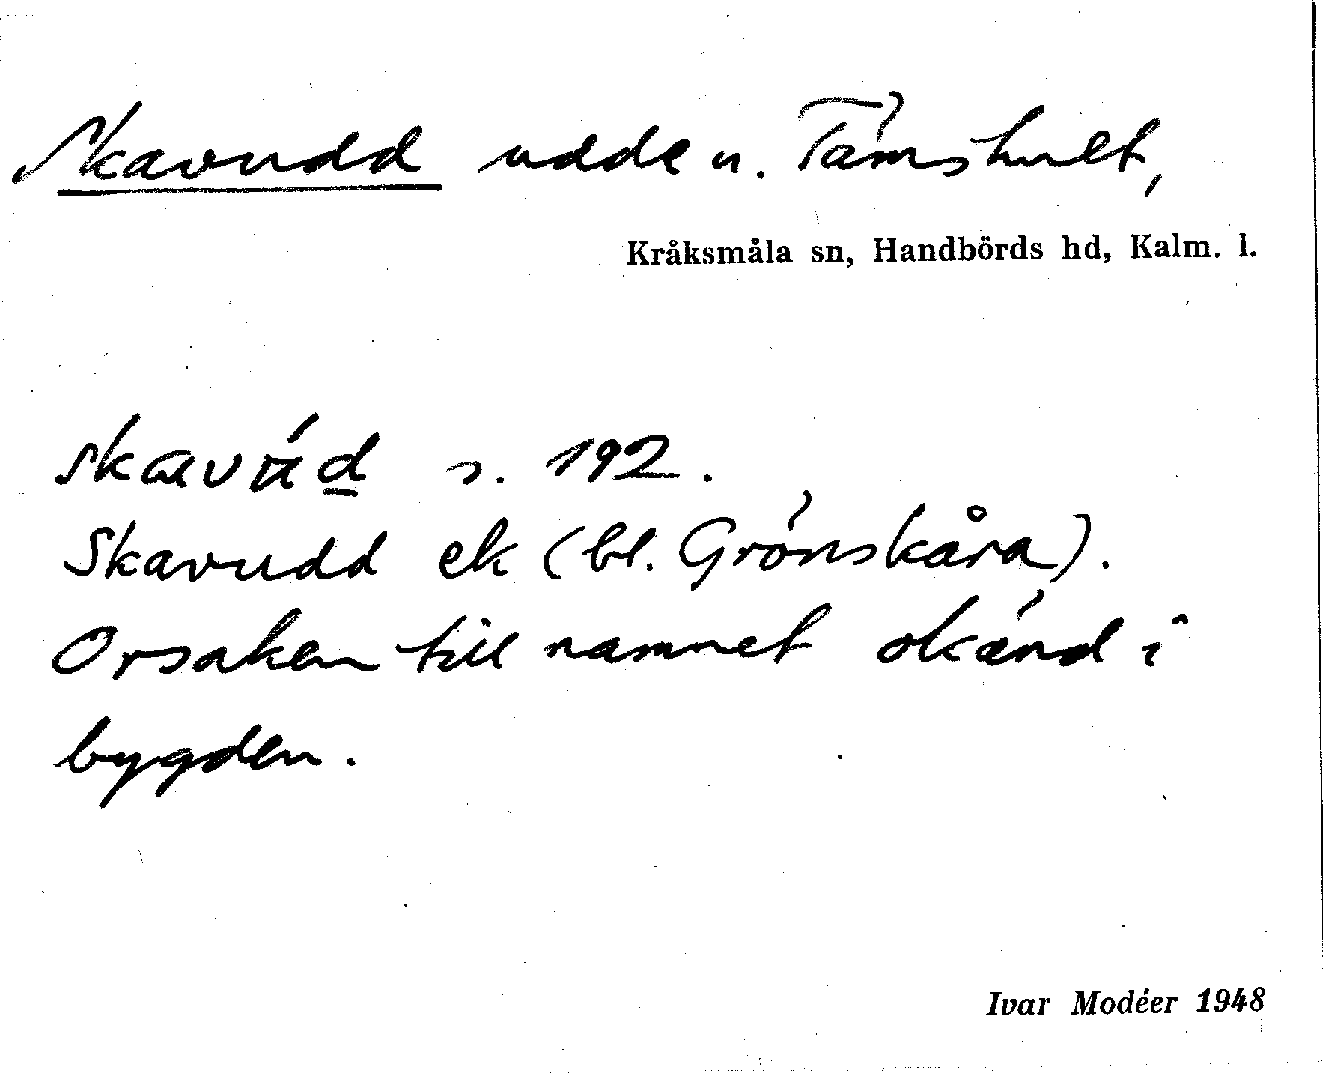 Skavudd udde u. Tämshult,
Kråksmåla sn, Handbörds hd, Kalm. l.
s. 192.
Skavudd ek (bl. Grönskåra).
Orsaken till namnet okänd i
bygden.
Ivar Modéer 1948